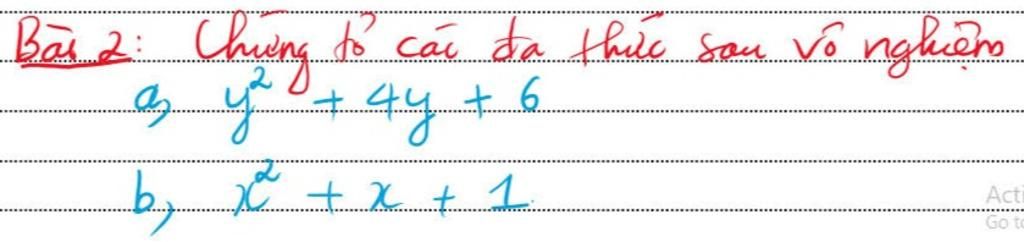 Bài 2: Chứng tỏ các đa thức sau vô nghiệm
a, y² + 4y + 6
b, x² + x + 1
Acti
Go to